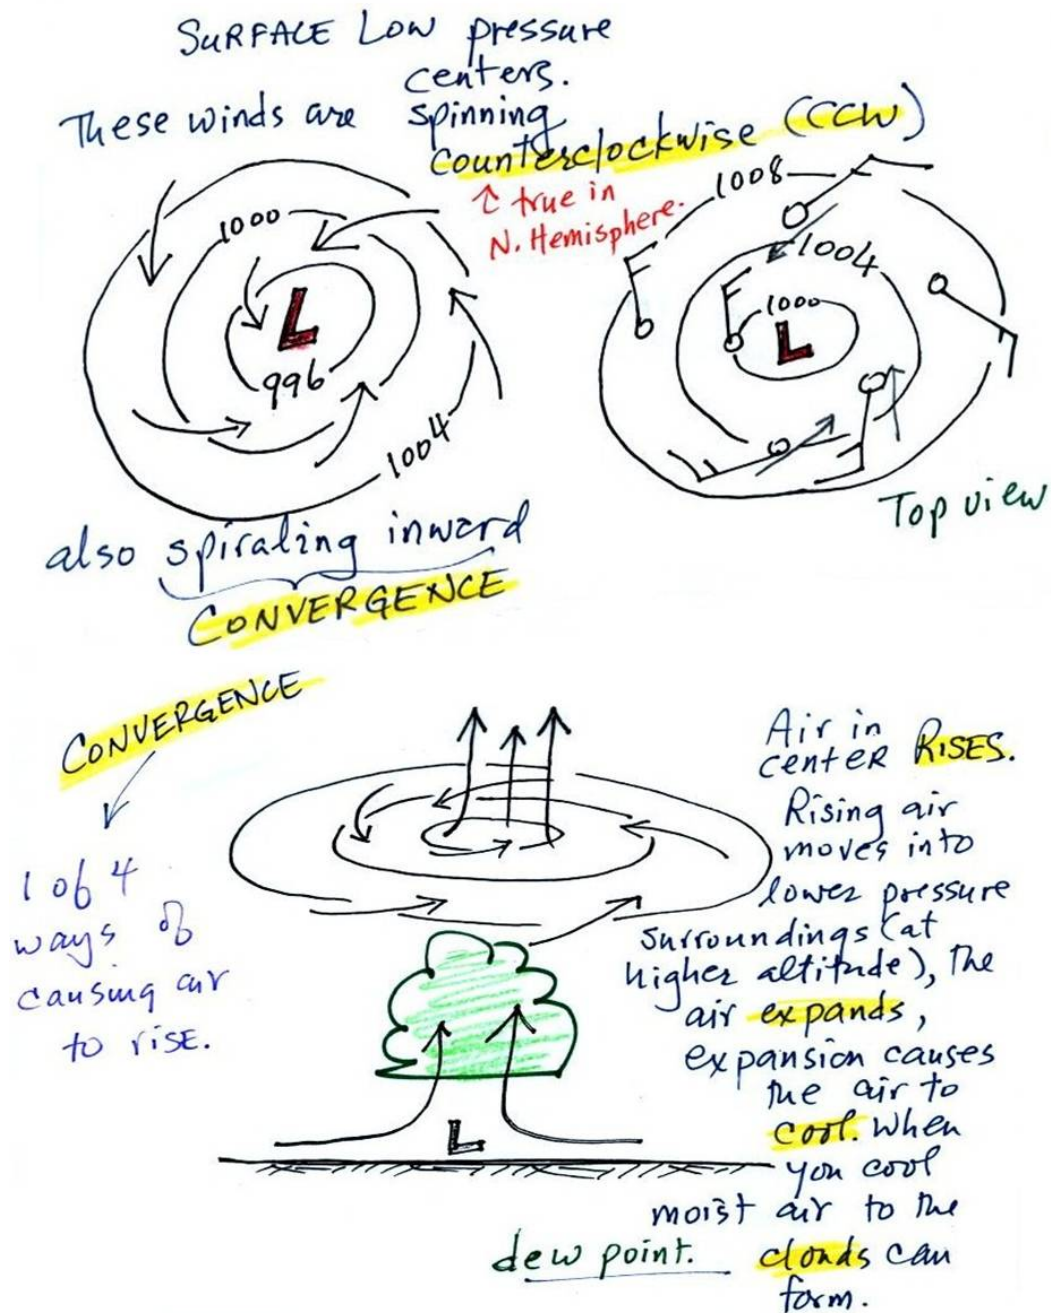 SURFACE LOW pressure
centers.
These winds are spinning
counterclockwise (CCW)
↑ true in
N. Hemisphere.
1000
L
996
1004
1008
1004
1000
L
Top view
also spiraling inward
CONVERGENCE
CONVERGENCE
1 of 4
ways of
causing air
to rise.
Air in
center RISES.
Rising air
moves into
lower pressure
surroundings (at
higher altitude), the
air expands,
expansion causes
the air to
cool. When
you cool
moist air to the
dew point. clouds can
form.
L